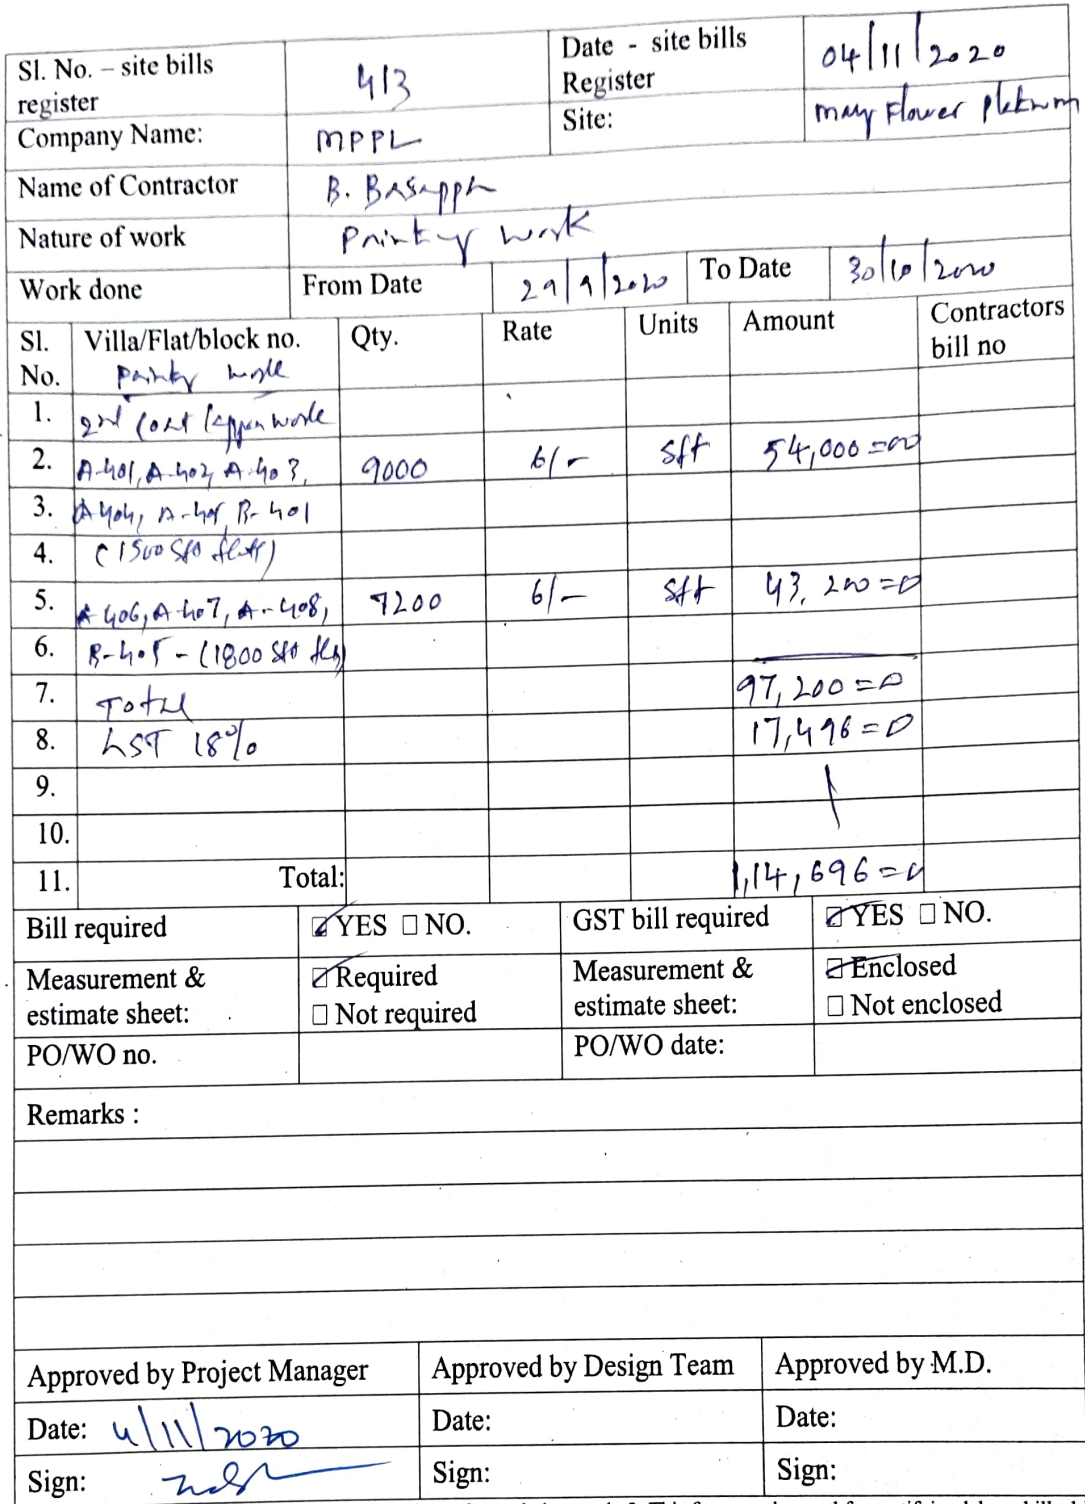 Sl. No. – site bills register 413 Date - site bills Register 04/11/2020
Company Name: MPPL Site: May Flower Platinum
Name of Contractor B. Basappa
Nature of work Painting work
Work done From Date 29/9/2020 To Date 30/10/2020
Sl. No. Villa/Flat/block no. Qty. Rate Units Amount Contractors bill no
Painting work
1. 2nd Coat Lappam work
2. A-401, A-402, A-403, 9000 6/- sft 54,000=00
3. A-404, A-405, B-401
4. (1500 Sft flats)
5. A-406, A-407, A-408, 7200 6/- sft 43,200=0
6. B-405 - (1800 Sft
7. Total 97,200=0
8. GST 18% 17,496=0
9.
10.
11. Total: 1,14,696=0
Bill required ☑ YES □ NO. GST bill required ☑ YES □ NO.
Measurement & estimate sheet: ☑ Required □ Not required Measurement & estimate sheet: ☑ Enclosed □ Not enclosed
PO/WO no. PO/WO date:
Remarks :
Approved by Project Manager Approved by Design Team Approved by M.D.
Date: 4/11/2020 Date: Date:
Sign: Sign: Sign: